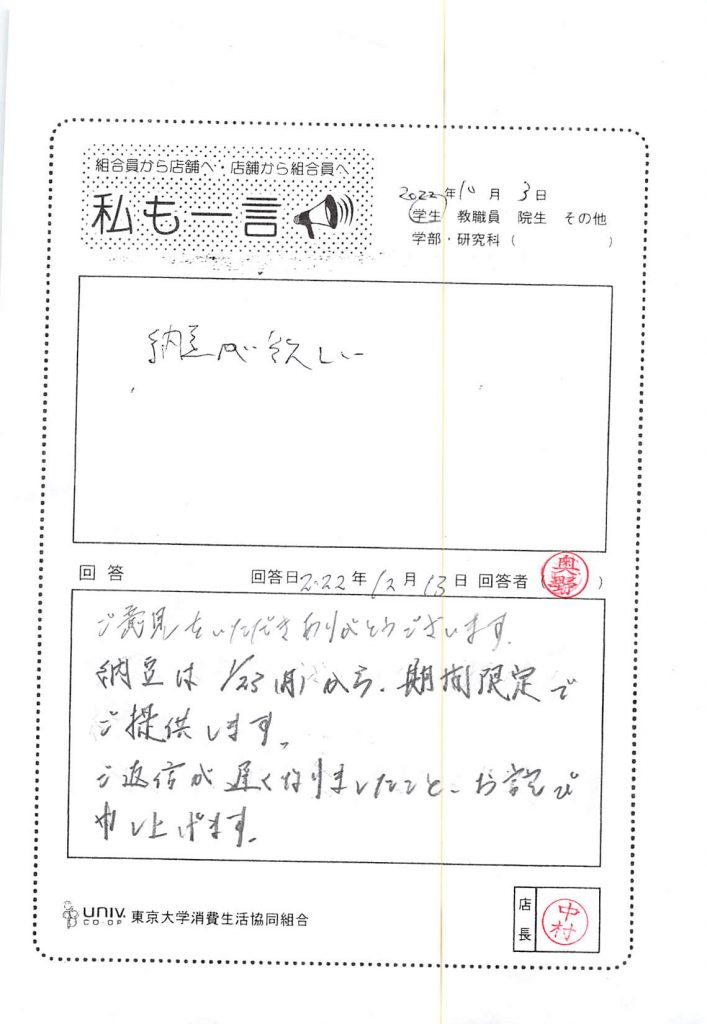 組合員から店舗へ・店舗から組合員へ
私も一言
2022年10月3日
学生 教職員 院生 その他
学部・研究科( )
納豆が欲しい
回答 回答日2022年12月13日 回答者(奥野)
ご意見をいただきありがとうございます。
納豆は1/23(月)から、期間限定で
ご提供します。
ご返信が遅くなりましたこと、お詫び
申し上げます。
UNIV. CO-OP 東京大学消費生活協同組合
店長 中村